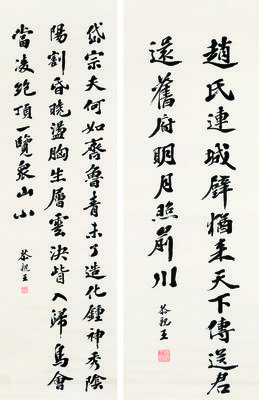 趙氏連城璧猶来天下傳送君
還舊府明月照前川
恭親王
岱宗夫何如齊魯青未了造化鍾神秀陰
陽割昏曉盪胸生層雲決眥入歸鳥會
當凌絶頂一覽衆山小
恭親王